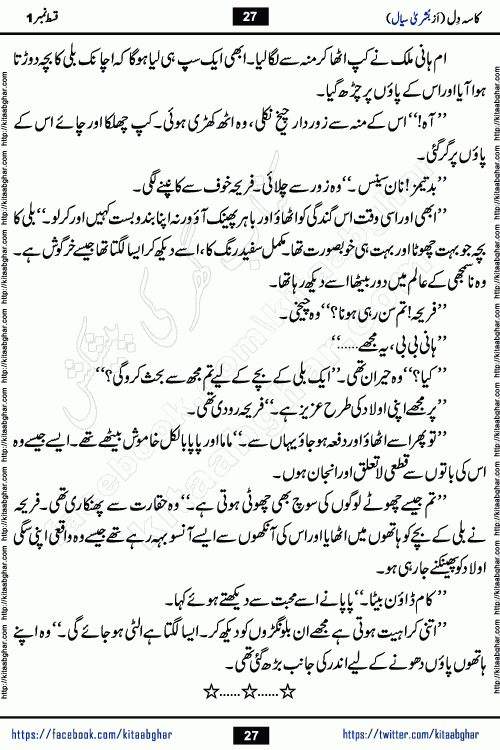 قسط نمبر 1
27
کاسہ دل (از بشریٰ سیال)
ام ہانی ملک نے کپ اٹھا کر منہ سے لگا لیا۔ ابھی ایک سپ ہی لیا ہوگا کہ اچانک بلی کا بچہ دوڑتا
ہوا آیا اور اس کے پاؤں پر چڑھ گیا۔
’’آہ!‘‘ اس کے منہ سے زور دار چیخ نکلی، وہ اٹھ کھڑی ہوئی۔ کپ چھلکا اور چائے اس کے
پاؤں پر گر گئی۔
’’بدتمیز! نان سینس۔‘‘ وہ زور سے چلائی۔ فریحہ خوف سے کانپنے لگی۔
’’ابھی اور اسی وقت اس گندگی کو اٹھاؤ اور باہر پھینک آؤ ورنہ اپنا بندوبست کہیں اور کر لو۔‘‘ بلی کا
بچہ جو بہت چھوٹا اور بہت ہی خوبصورت تھا۔ مکمل سفید رنگ کا، اسے دیکھ کر ایسا لگتا تھا جیسے خرگوش ہے۔
وہ ناسمجھی کے عالم میں دور بیٹھا اسے دیکھ رہا تھا۔
’’فریحہ! تم سن رہی ہو نا؟‘‘ وہ چیخی۔
’’ہانی بی بی، یہ مجھے......‘‘
’’کیا؟‘‘ وہ حیران تھی۔ ’’ایک بلی کے بچے کے لیے تم مجھ سے بحث کرو گی؟‘‘
’’پر مجھے اپنی اولاد کی طرح عزیز ہے۔‘‘ فریحہ رو دی تھی۔
’’تو پھر اسے اٹھاؤ اور دفعہ ہو جاؤ یہاں سے۔‘‘ ماما اور پاپا بالکل خاموش بیٹھے تھے۔ ایسے جیسے وہ
اس کی باتوں سے قطعی لاتعلق اور انجان ہوں۔
’’تم جیسے چھوٹے لوگوں کی سوچ بھی چھوٹی ہوتی ہے۔‘‘ وہ حقارت سے پھنکاری تھی۔ فریحہ
نے بلی کے بچے کو ہاتھوں میں اٹھایا اور اس کی آنکھوں سے ایسے آنسو بہہ رہے تھے جیسے وہ واقعی اپنی سگی
اولاد کو پھینکنے جا رہی ہو۔
’’کام ڈاؤن بیٹا۔‘‘ پاپا نے اسے محبت سے دیکھتے ہوئے کہا۔
’’اتنی کراہیت ہوتی ہے مجھے ان بلونگڑوں کو دیکھ کر۔ ایسا لگتا ہے الٹی ہو جائے گی۔‘‘ وہ اپنے
ہاتھوں پاؤں دھونے کے لیے اندر کی جانب بڑھ گئی تھی۔
☆......☆......☆
https://facebook.com/kitaabghar
27
https://twitter.com/kitaabghar
http://kitaabghar.com http://kitaabghar.com http://kitaabghar.com http://kitaabghar.com http://kitaabghar.com
http://kitaabghar.com http://kitaabghar.com http://kitaabghar.com http://kitaabghar.com http://kitaabghar.com
کتاب گھر کی پیشکش
facebook.com/kitaabghar
kitaabghar.com